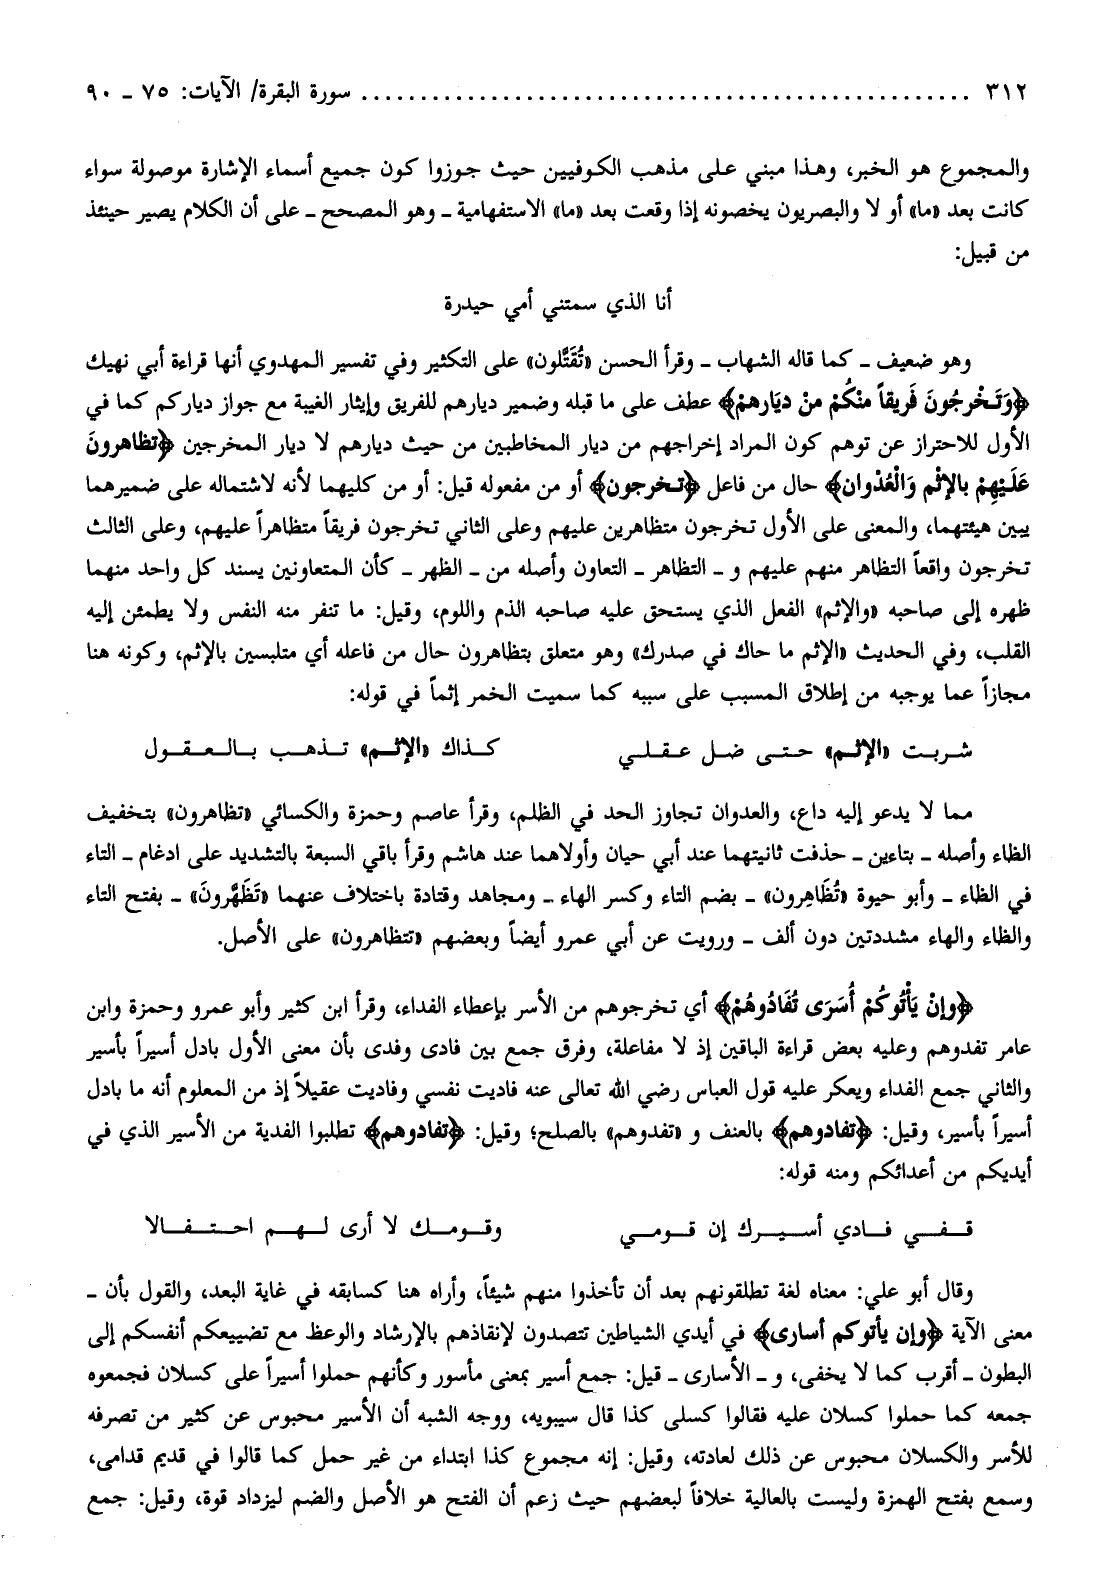 ٣١٢ ................................................... سورة البقرة/ الآيات: ٧٥ ـ ٩٠
والمجموع هو الخبر، وهذا مبني على مذهب الكوفيين حيث جوزوا كون جميع أسماء الإشارة موصولة سواء
كانت بعد «ما» أو لا والبصريون يخصونه إذا وقعت بعد «ما» الاستفهامية ـ وهو المصحح ـ على أن الكلام يصير حينئذ
من قبيل:
أنا الذي سمتني أمي حيدرة
وهو ضعيف ـ كما قاله الشهاب ـ وقرأ الحسن «تُقَتَّلون» على التكثير وفي تفسير المهدوي أنها قراءة أبي نهيك
﴿وَتَخْرجُونَ فَرِيقاً منْكُمْ منْ ديَارهمْ﴾ عطف على ما قبله وضمير ديارهم للفريق وإيثار الغيبة مع جواز دياركم كما في
الأول للاحتراز عن توهم كون المراد إخراجهم من ديار المخاطبين من حيث ديارهم لا ديار المخرجين ﴿تظاهرونَ
عَلَيْهِمْ بالإثْم وَالْعُدْوان﴾ حال من فاعل ﴿تخرجون﴾ أو من مفعوله قيل: أو من كليهما لأنه لاشتماله على ضميرهما
يبين هيئتهما، والمعنى على الأول تخرجون متظاهرين عليهم وعلى الثاني تخرجون فريقاً متظاهراً عليهم، وعلى الثالث
تخرجون واقعاً التظاهر منهم عليهم و ـ التظاهر ـ التعاون وأصله من ـ الظهر ـ كأن المتعاونين يسند كل واحد منهما
ظهره إلى صاحبه «والإثم» الفعل الذي يستحق عليه صاحبه الذم واللوم، وقيل: ما تنفر منه النفس ولا يطمئن إليه
القلب، وفي الحديث «الإثم ما حاك في صدرك» وهو متعلق بتظاهرون حال من فاعله أي متلبسين بالإثم، وكونه هنا
مجازاً عما يوجبه من إطلاق المسبب على سببه كما سميت الخمر إثماً في قوله:
شربت «الإثم» حتى ضل عقلي كذاك «الإثم» تذهب بالعقول
مما لا يدعو إليه داع، والعدوان تجاوز الحد في الظلم، وقرأ عاصم وحمزة والكسائي «تظاهرون» بتخفيف
الظاء وأصله ـ بتاءين ـ حذفت ثانيتهما عند أبي حيان وأولاهما عند هاشم وقرأ باقي السبعة بالتشديد على ادغام ـ التاء
في الظاء ـ وأبو حيوة «تُظَاهِرون» ـ بضم التاء وكسر الهاء ـ ومجاهد وقتادة باختلاف عنهما «تَظَهَّرونَ» ـ بفتح التاء
والظاء والهاء مشددتين دون ألف ـ ورويت عن أبي عمرو أيضاً وبعضهم «تتظاهرون» على الأصل.
﴿وإنْ يَأْتُوكُمْ أُسَرَى تُفَادُوهُمْ﴾ أي تخرجوهم من الأسر بإعطاء الفداء، وقرأ ابن كثير وأبو عمرو وحمزة وابن
عامر تفدوهم وعليه بعض قراءة الباقين إذ لا مفاعلة، وفرق جمع بين فادى وفدى بأن معنى الأول بادل أسيراً بأسير
والثاني جمع الفداء ويعكر عليه قول العباس رضي الله تعالى عنه فاديت نفسي وفاديت عقيلاً إذ من المعلوم أنه ما بادل
أسيراً بأسير، وقيل: ﴿تفادوهم﴾ بالعنف و «تفدوهم» بالصلح؛ وقيل: ﴿تفادوهم﴾ تطلبوا الفدية من الأسير الذي في
أيديكم من أعدائكم ومنه قوله:
قفي فادي أسيرك إن قومي وقومك لا أرى لهم احتفالا
وقال أبو علي: معناه لغة تطلقونهم بعد أن تأخذوا منهم شيئاً، وأراه هنا كسابقه في غاية البعد، والقول بأن ـ
معنى الآية ﴿وإن يأتوكم أسارى﴾ في أيدي الشياطين تتصدون لإنقاذهم بالإرشاد والوعظ مع تضييعكم أنفسكم إلى
البطون ـ أقرب كما لا يخفى، و ـ الأسارى ـ قيل: جمع أسير بمعنى مأسور وكأنهم حملوا أسيراً على كسلان فجمعوه
جمعه كما حملوا كسلان عليه فقالوا كسلى كذا قال سيبويه، ووجه الشبه أن الأسير محبوس عن كثير من تصرفه
للأسر والكسلان محبوس عن ذلك لعادته، وقيل: إنه مجموع كذا ابتداء من غير حمل كما قالوا في قديم قدامى،
وسمع بفتح الهمزة وليست بالعالية خلافاً لبعضهم حيث زعم أن الفتح هو الأصل والضم ليزداد قوة، وقيل: جمع